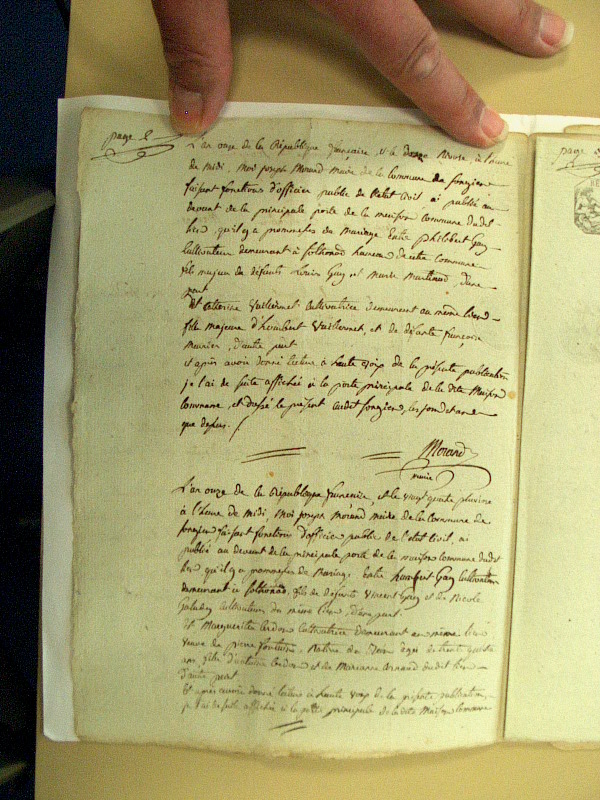 page 2
L'an onze de la République française, et le douze Nivose à l'heure
de midi, Moi joseph Morand maire de la commune de songieu
faisant fonctions d'officier public de l'etat civil ai publié au
devant de la principale porte de la maison commune dudit
lieu qu'il y a promesses de mariage entre philibert Guy
Cultivateur demeurant à sothonod hameau de cette commune
fils majeur de défunts Louis Guy et Marie Martinaud, d'une
part
Et Vuillermet Cultivatrice demeurant au même lieu
fille majeure d'humbert Vuillermet, et de défunte françoise
Meunier, d'autre part
et après avoir donné lecture à haute voix de la présente publication
je l'ai de suite affiché à la porte principale de la dite Maison
Commune, et dressé le présent audit songieu, les jour et an
que dessus.
Morand
maire
L'an onze de la République française, et le vingt quatre pluviose
à l'heure de midi Moi joseph Morand maire de la commune de
songieu faisant fonctions d'officier public de l'etat civil, ai
publié au devant de la principale porte de la maison commune dudit
lieu qu'il y a promesses de Mariage entre humbert Guy Cultivateur
demeurant à sothonod, fils de défunts Vincent Guy et de Nicole
cultivateurs du même lieu, d'une part
Et Marguerite Cultivatrice demeurant au même lieu
veuve de pierre fontaine, Native de agée de trente quatre
ans, fille d'antoine et de Marianne dudit lieu
d'autre part
Et après avoir donné lecture à haute voix de la présente publication,
je l'ai de suite affichée à la porte principale de la dite Maison Commune